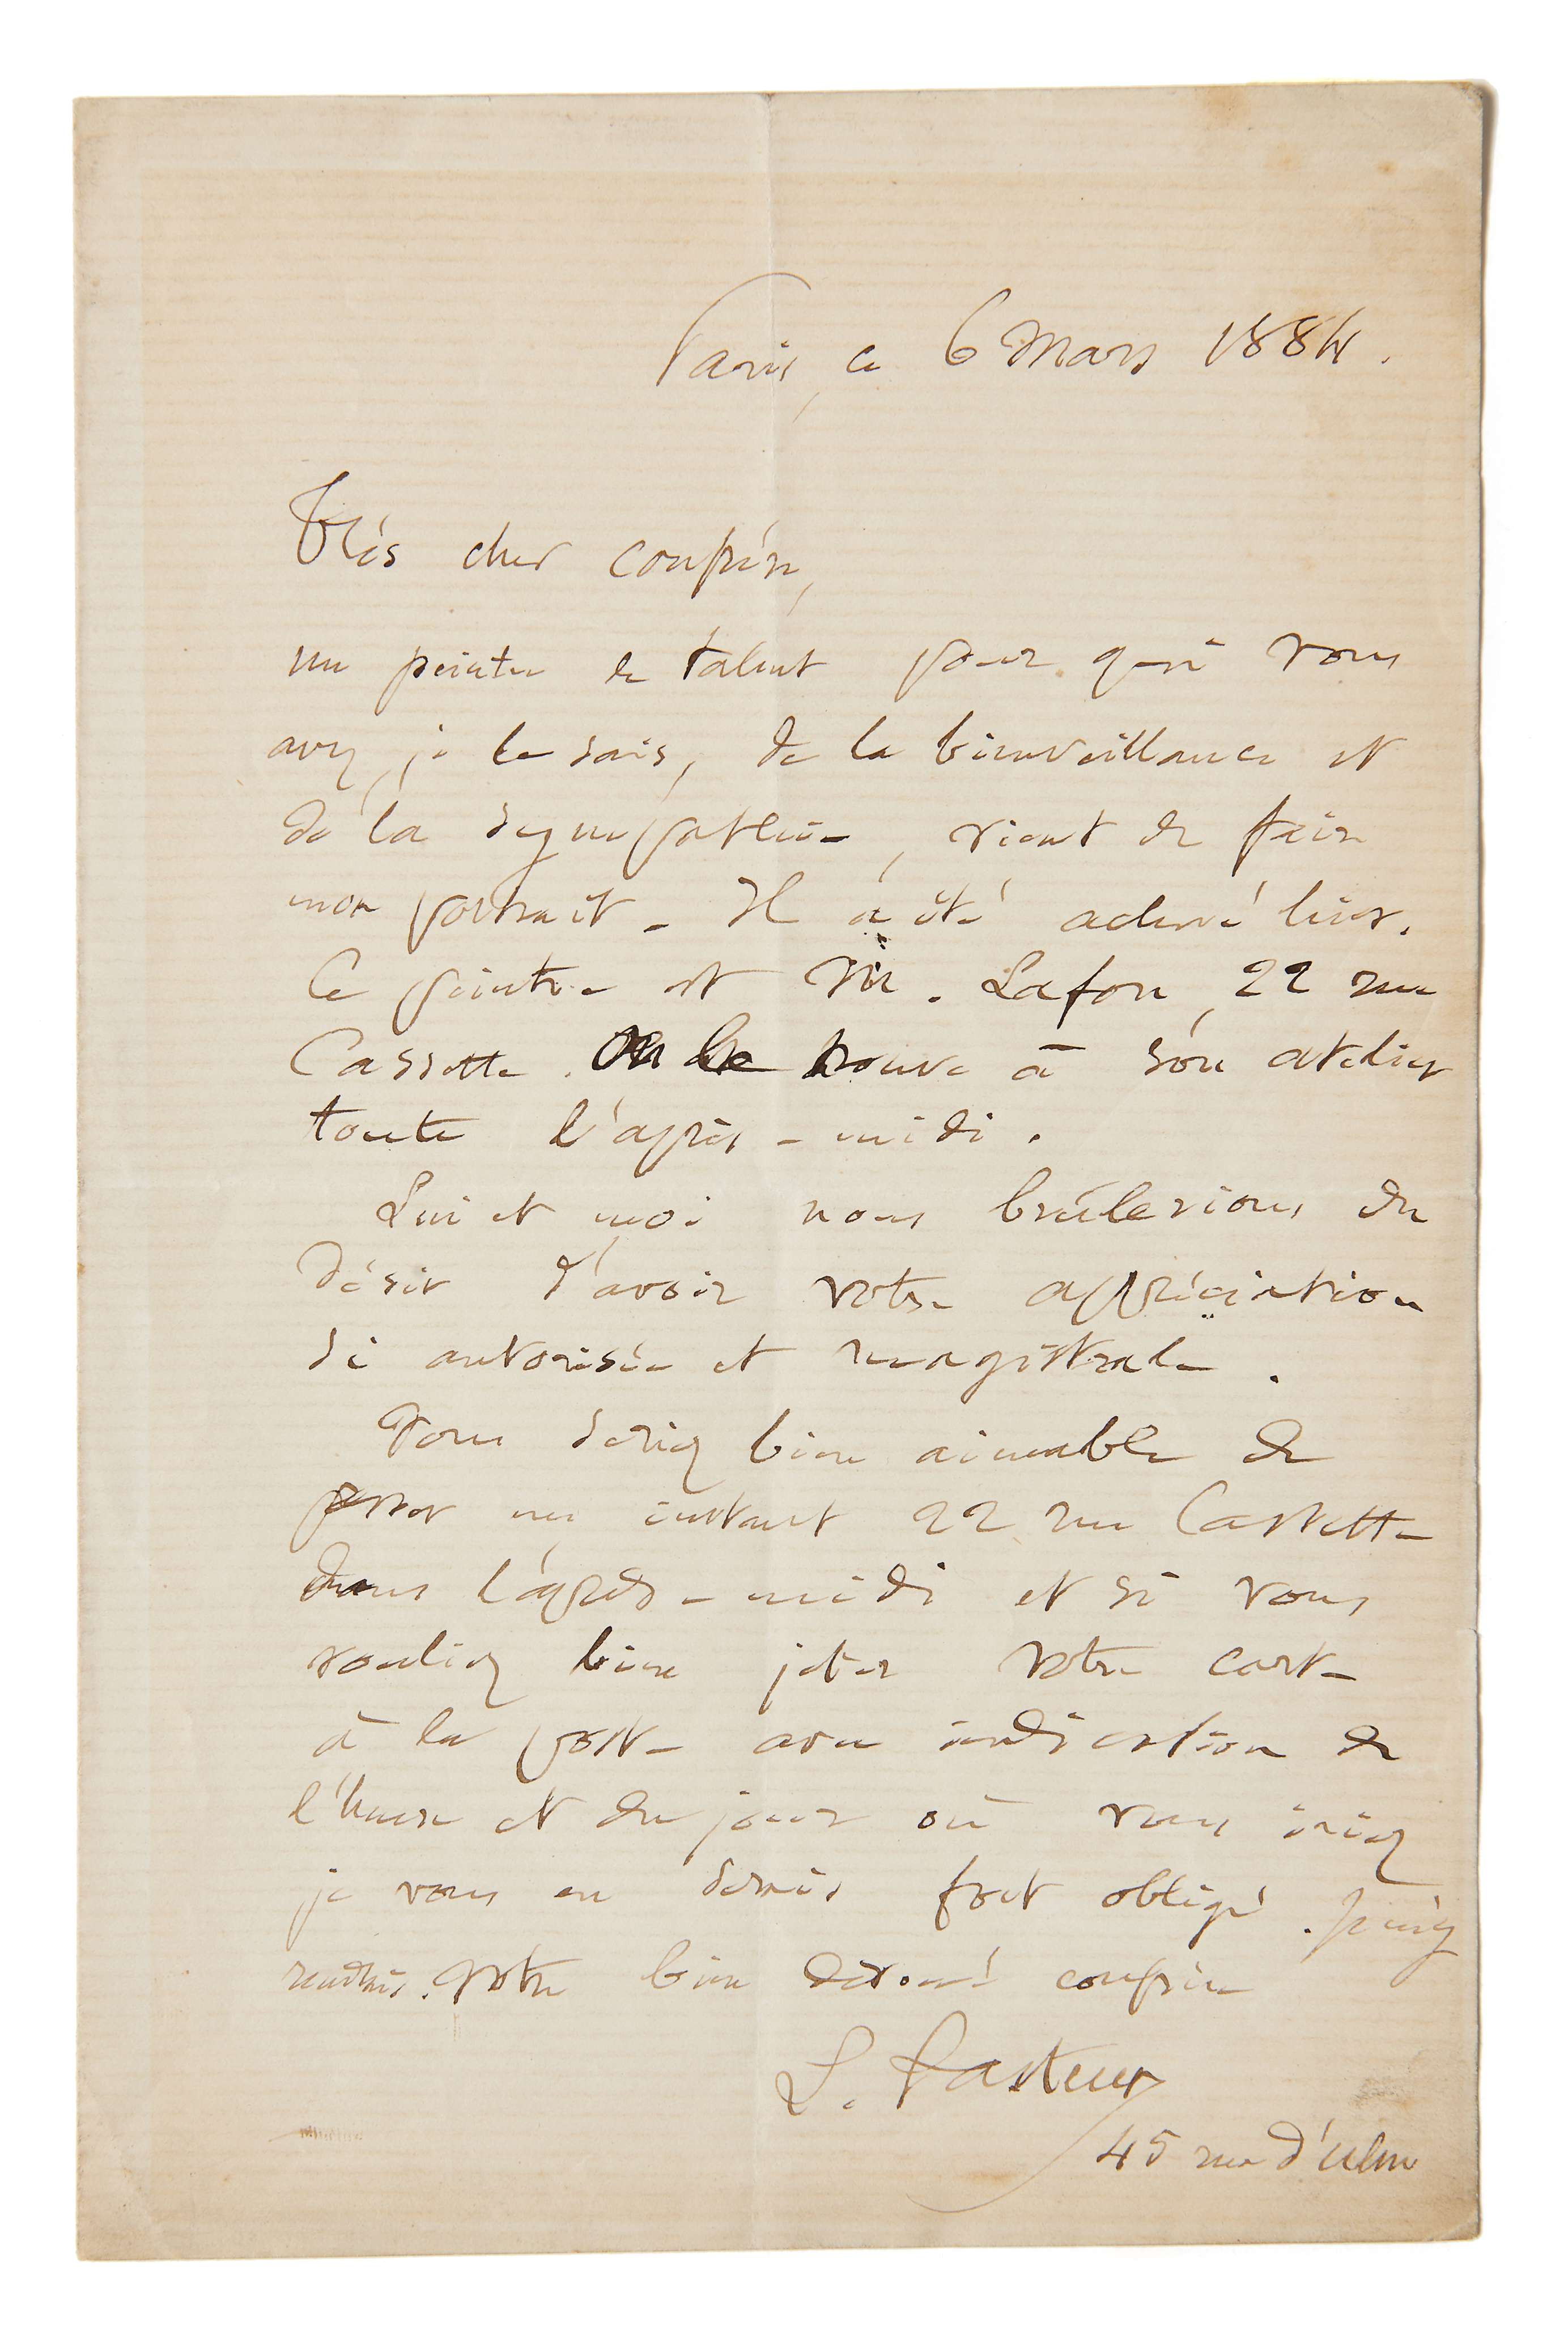 Paris, ce 6 Mars 1884.
Très cher confrère,
un peintre de talent pour qui vous
avez, je le sais, de la bienveillance et
de la sympathie, vient de faire
mon portrait. Il a été achevé hier.
Ce peintre est M. Lafon, 22 rue
Cassette. On le trouve à son atelier
toute l'après-midi.
Lui et moi nous brûlerions du
désir d'avoir votre appréciation
si autorisée et magistrale.
Vous seriez bien aimable de
passer un instant 22 rue Cassette
dans l'après-midi et si vous
vouliez bien jeter votre carte
à la poste avec indication de
l'heure et du jour où vous iriez
je vous en serais fort obligé. J'irais
Votre bien dévoué confrère
L. Pasteur
45 rue d'Ulm